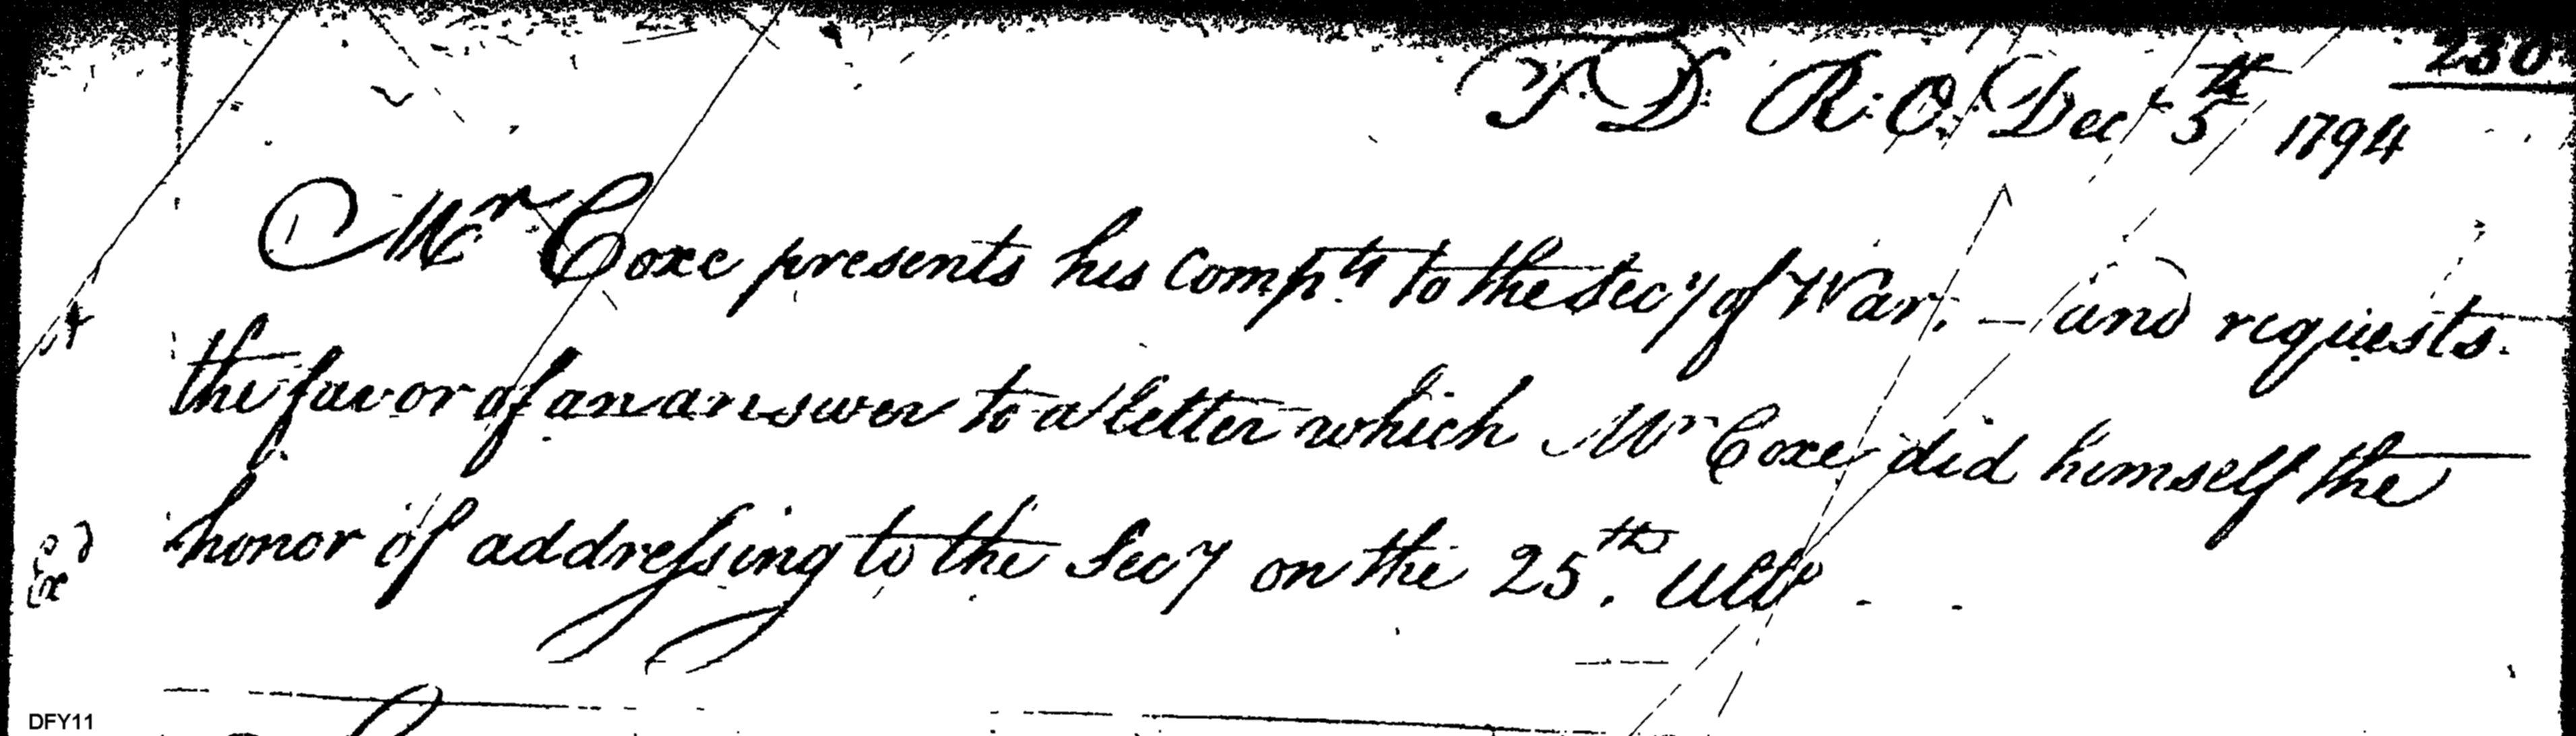 230
T: D: R: O: Dec 5th 1794
Mr Coxe presents his compts to the Secy of War. — and requests
the favor of an answer to a letter which Mr Coxe did himself the
honor of addressing to the Secy on the 25th. Ulto
Exd
DFY11